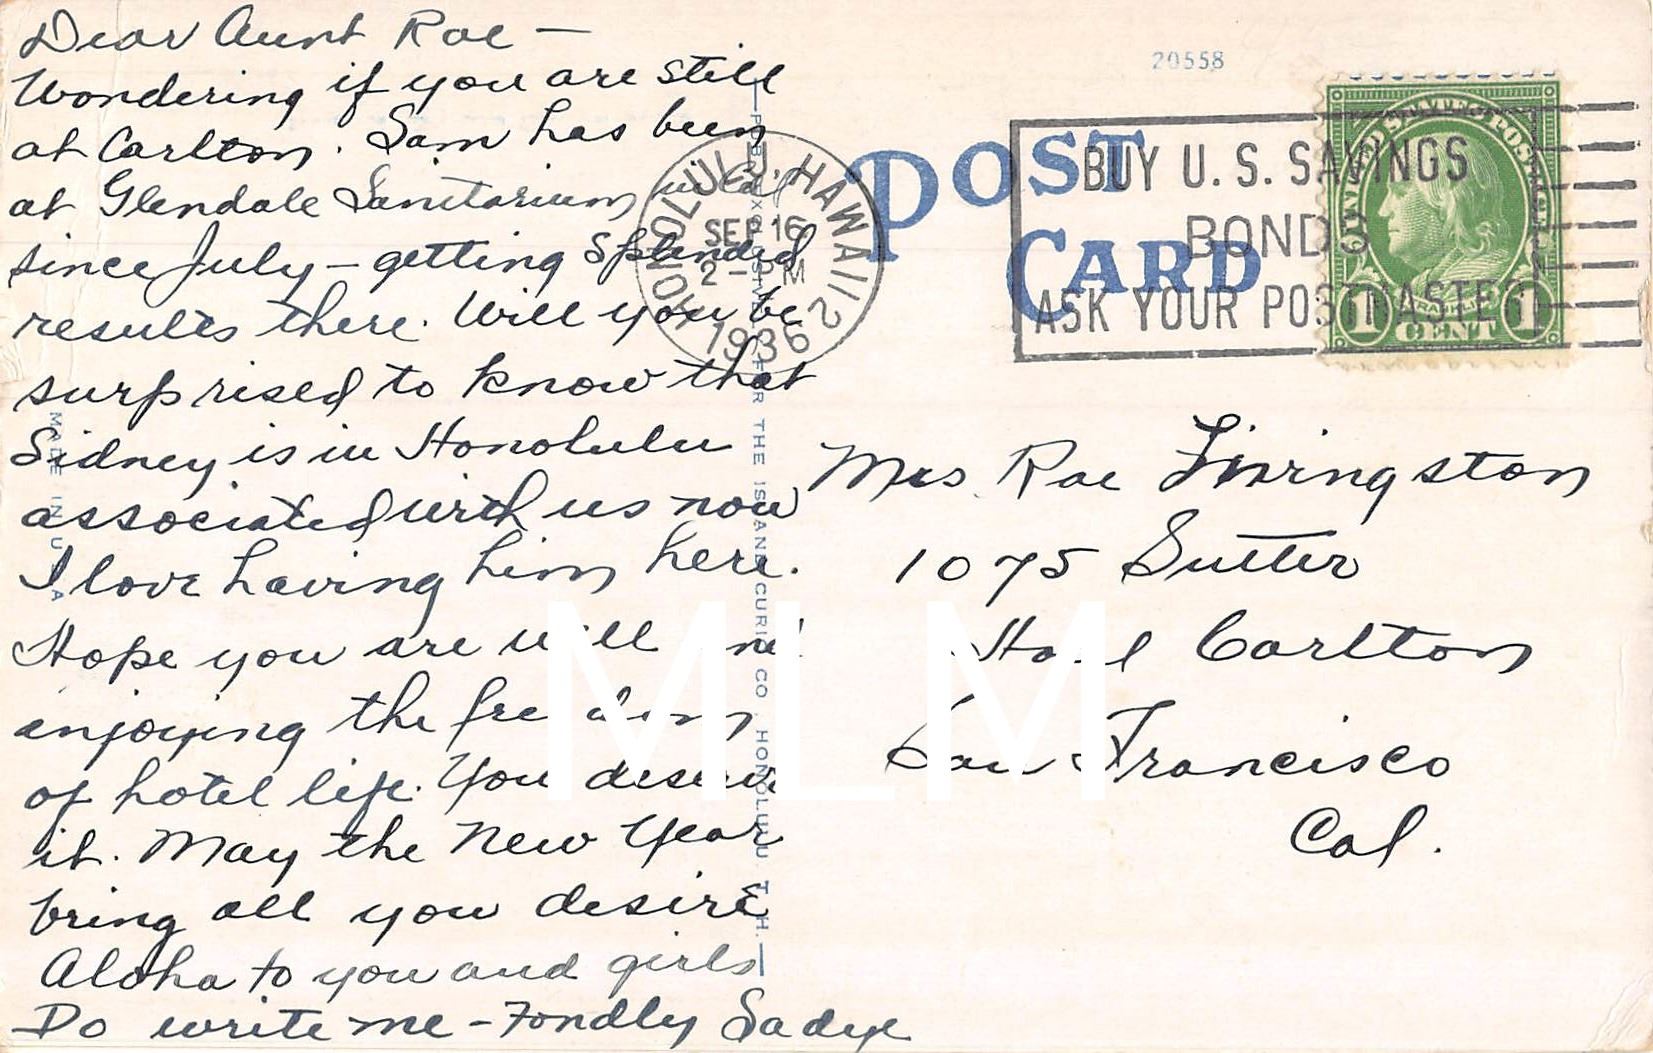 Dear Aunt Rae —
Wondering if you are still
at Carlton. Sam has been
at Glendale Sanitarium
since July — getting splendid
results there. Will you be
surprised to know that
Sidney is in Honolulu
associated with us now
I love having him here.
Hope you are well and
enjoying the freedom
of hotel life. You deserve
it. May the New Year
bring all you desire
Aloha to you and girls
Do write me – Fondly Sadye
MADE IN U.S.A
FOR THE ISLAND CURIO CO HONOLULU. T. H.
20558
POST
CARD
HONOLULU, HAWAII
SEP 16
2 - PM
1936
BUY U. S. SAVINGS
BONDS
ASK YOUR POSTMASTER
1 CENT 1
Mrs. Rae Livingston
1075 Sutter
Hotel Carlton
San Francisco
Cal.
MLM